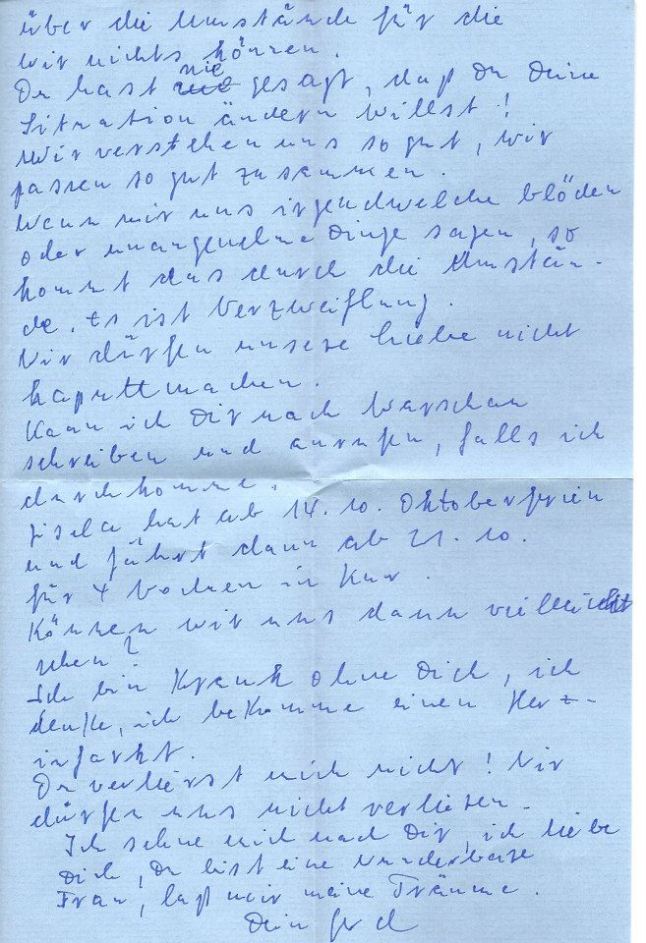 über die Umstände für die
wir nichts können.
Du hast nie gesagt, daß Du Deine
Situation ändern willst!
Wir verstehen uns so gut, wir
passen so gut zusammen.
Wenn wir uns irgendwelche blöden
oder unangenehme Dinge sagen, so
kommt das durch die Umstän-
de. Es ist Verzweiflung.
Wir dürfen unsere Liebe nicht
kaputtmachen.
Kann ich Dir nach Warschau
schreiben und anrufen, falls ich
durchkomme.
Gisela hat ab 14. 10. Oktoberferien
und fährt dann ab 21. 10.
für 4 Wochen in Kur.
Können wir uns dann vielleicht
sehen?
Ich bin Krank ohne Dich, ich
denke, ich bekomme einen Herz-
infarkt.
Du verlierst mich nicht! Wir
dürfen uns nicht verlieren.
Ich sehne mich nach Dir, ich liebe
Dich, Du bist eine wunderbare
Frau, laß mir meine Träume.
Dein Gerd